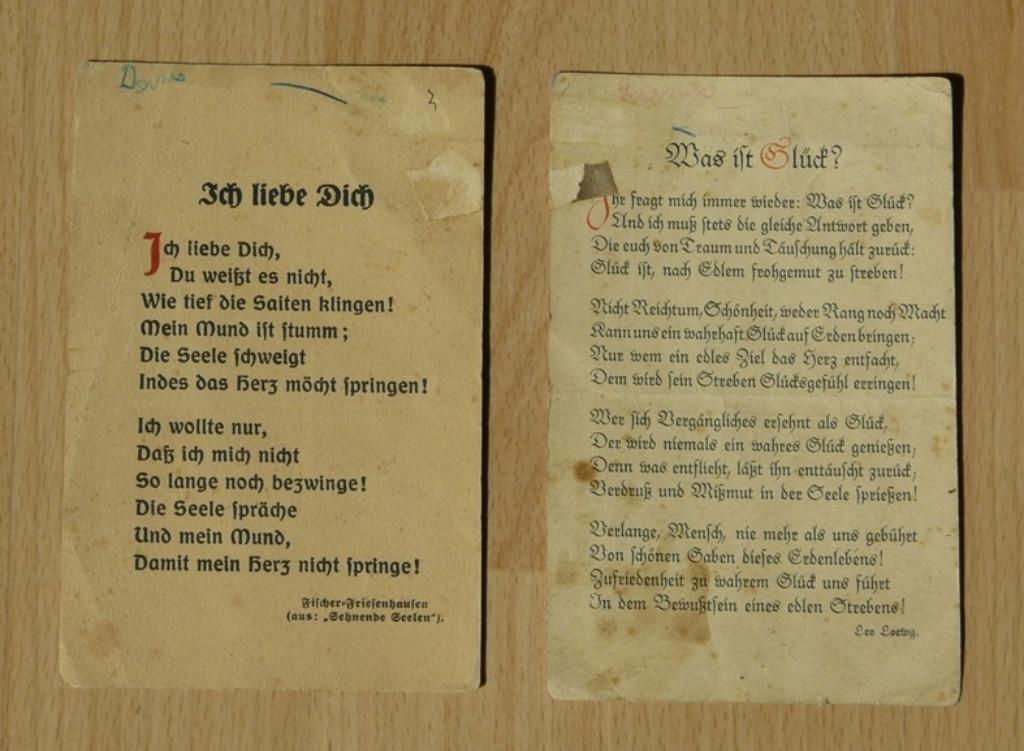 Ich liebe Dich
Ich liebe Dich,
Du weißt es nicht,
Wie tief die Saiten klingen!
Mein Mund ist stumm;
Die Seele schweigt
Indes das Herz möcht springen!
Ich wollte nur,
Daß ich mich nicht
So lange noch bezwinge!
Die Seele spräche
Und mein Mund,
Damit mein Herz nicht springe!
Fischer-Friesenhausen
(aus: „Sehnende Seelen“).
Was ist Glück?
Ihr fragt mich immer wieder: Was ist Glück?
Und ich muß stets die gleiche Antwort geben,
Die euch von Traum und Täuschung hält zurück:
Glück ist, nach Edlem frohgemut zu streben!
Nicht Reichtum, Schönheit, weder Rang noch Macht
Kann uns ein wahrhaft Glück auf Erden bringen;
Nur wem ein edles Ziel das Herz entfacht,
Dem wird sein Streben Glücksgefühl erringen!
Wer sich Vergängliches ersehnt als Glück,
Der wird niemals ein wahres Glück genießen;
Denn was entflieht, läßt ihn enttäuscht zurück;
Verdruß und Mißmut in der Seele sprießen!
Verlange, Mensch, nie mehr als uns gebührt
Von schönen Gaben dieses Erdenlebens!
Zufriedenheit zu wahrem Glück uns führt
In dem Bewußtsein eines edlen Strebens!
Leo Loewy.